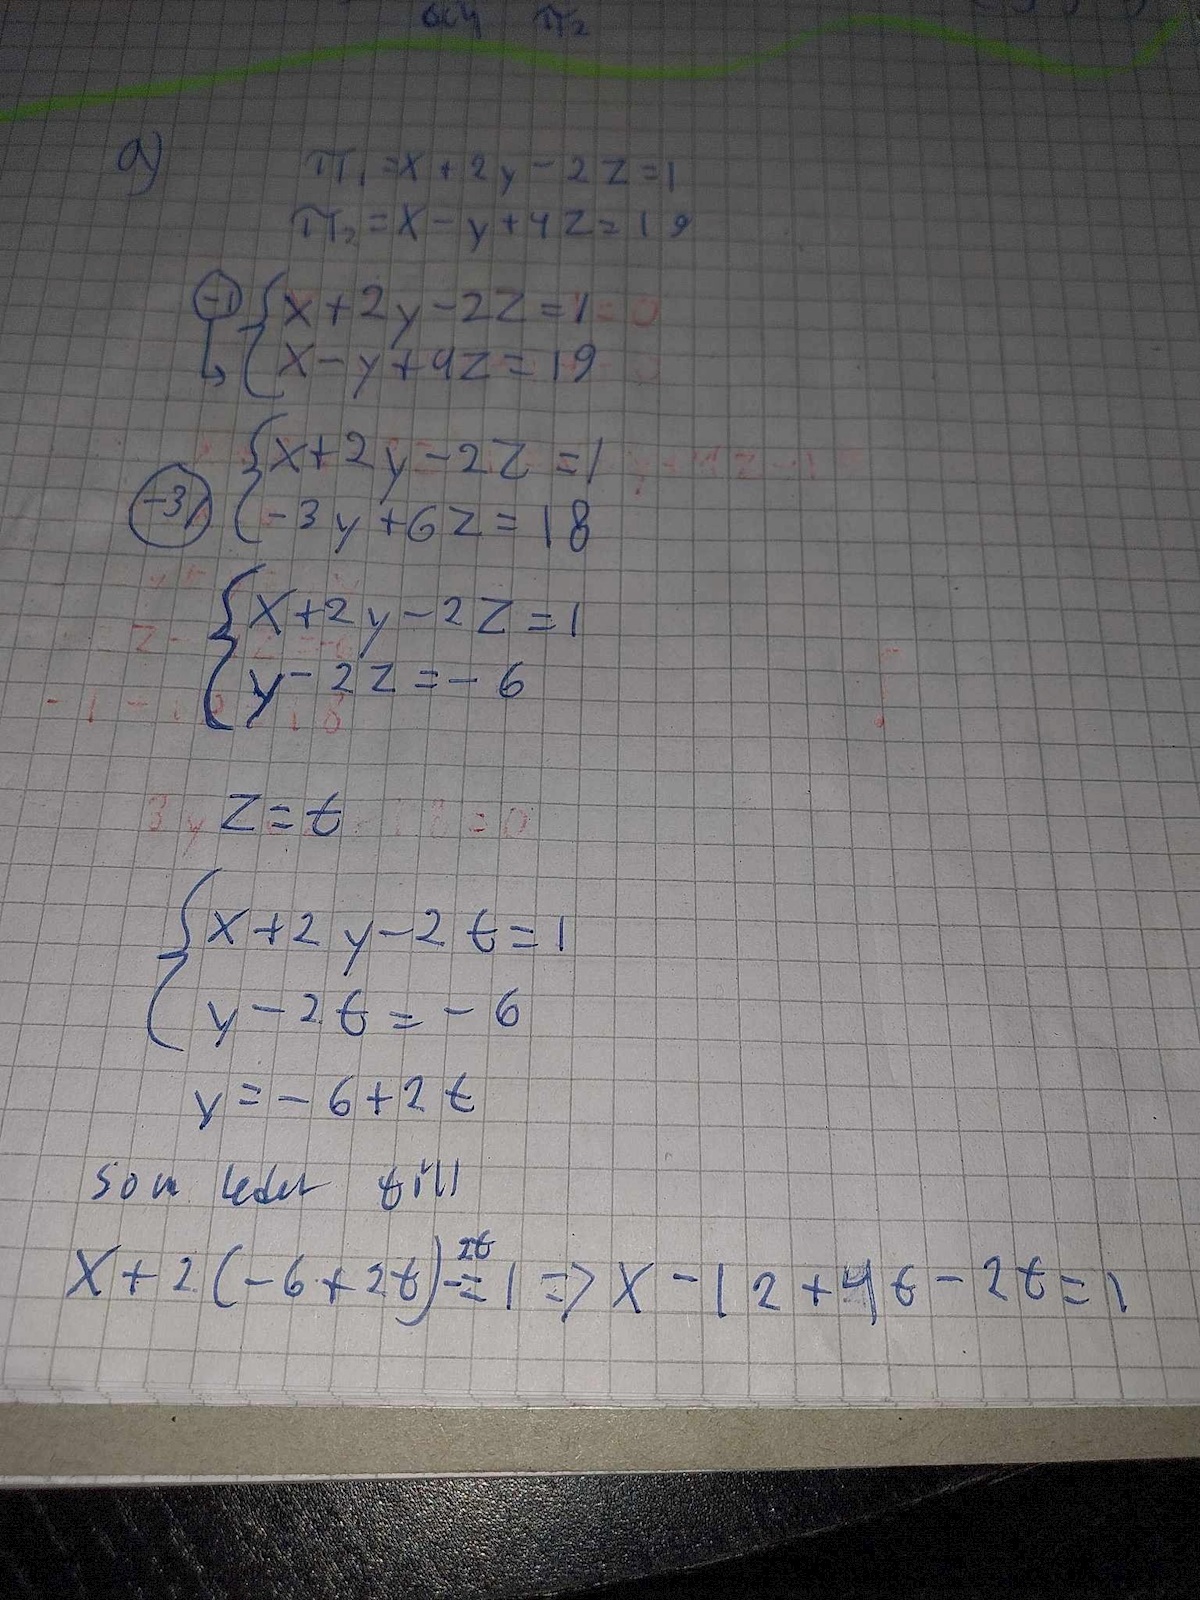 och π₂
a)
π₁=x+2y-2z=1
π₂=x-y+4z=19
-1 {x+2y-2z=1
x-y+4z=19
{x+2y-2z=1
-3 -3y+6z=18
{x+2y-2z=1
y-2z=-6
z=t
{x+2y-2t=1
y-2t=-6
y=-6+2t
som leder till
x+2(-6+2t)-2t=1 => x-12+4t-2t=1